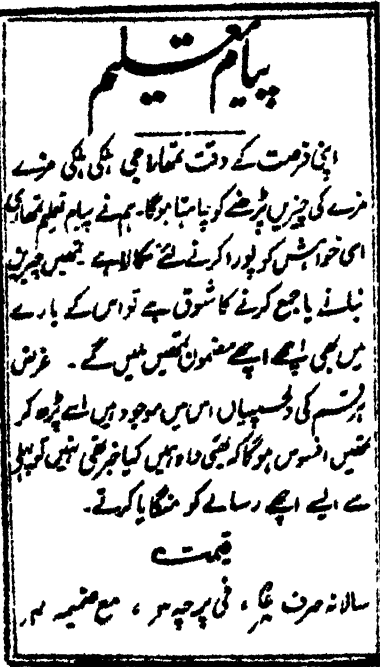 پیام تعلیم
اپنی فرصت کے وقت تمھارا جی ہلکی ہلکی مزے
مزے کی چیزیں پڑھنے کو چاہتا ہوگا۔ ہم نے پیام تعلیم تمھاری
اسی خواہش کو پورا کرنے لئے نکالا ہے۔ تمھیں چیزیں
بنانے یا جمع کرنے کا شوق ہے تو اس کے بارے
میں بھی اچھے اچھے مضمون تمھیں ملیں گے۔ غرض
ہر قسم کی دلچسپیاں اس میں موجود ہیں اسے پڑھ کر
تمھیں افسوس ہوگا کہ یعنی واہ ہمیں کیا خبر تھی نہیں تو پہلی
سے ایسے اچھے رسالے کو منگایا کرتے۔
قیمت
سالانہ صرف ، فی پرچہ ، مع ضمیمہ